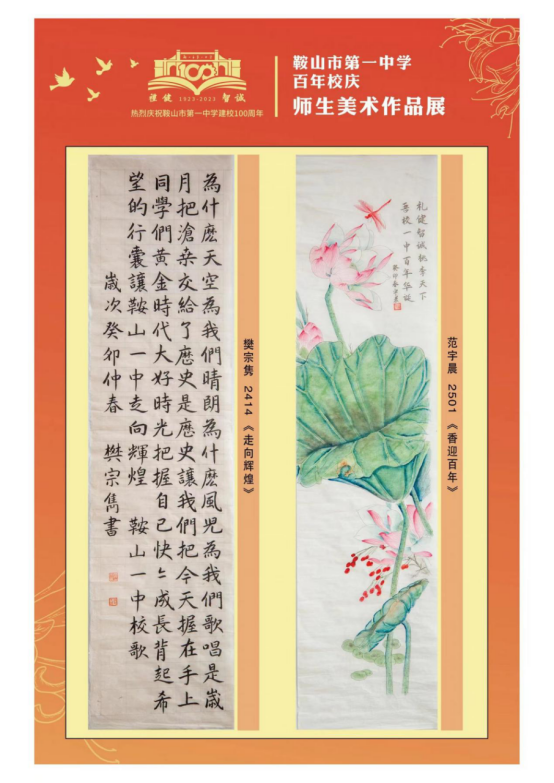 禮健 1923-2023 智诚
热烈庆祝鞍山市第一中学建校100周年
鞍山市第一中学
百年校庆
师生美术作品展
為什麽天空為我們晴朗為什麽風児為我們歌唱是歲
月把滄桒交給了歷史是歷史讓我們把今天握在手上
同學們黃金時代大好時光把握自己快〻成長背起希
望的行囊讓鞍山一中走向輝煌 鞍山一中校歌
歲次癸卯仲春 樊宗雋書
樊宗隽 2414 《走向辉煌》
礼健智诚桃李天下
吾校一中百年华诞
范宇晨 2501 《香迎百年》